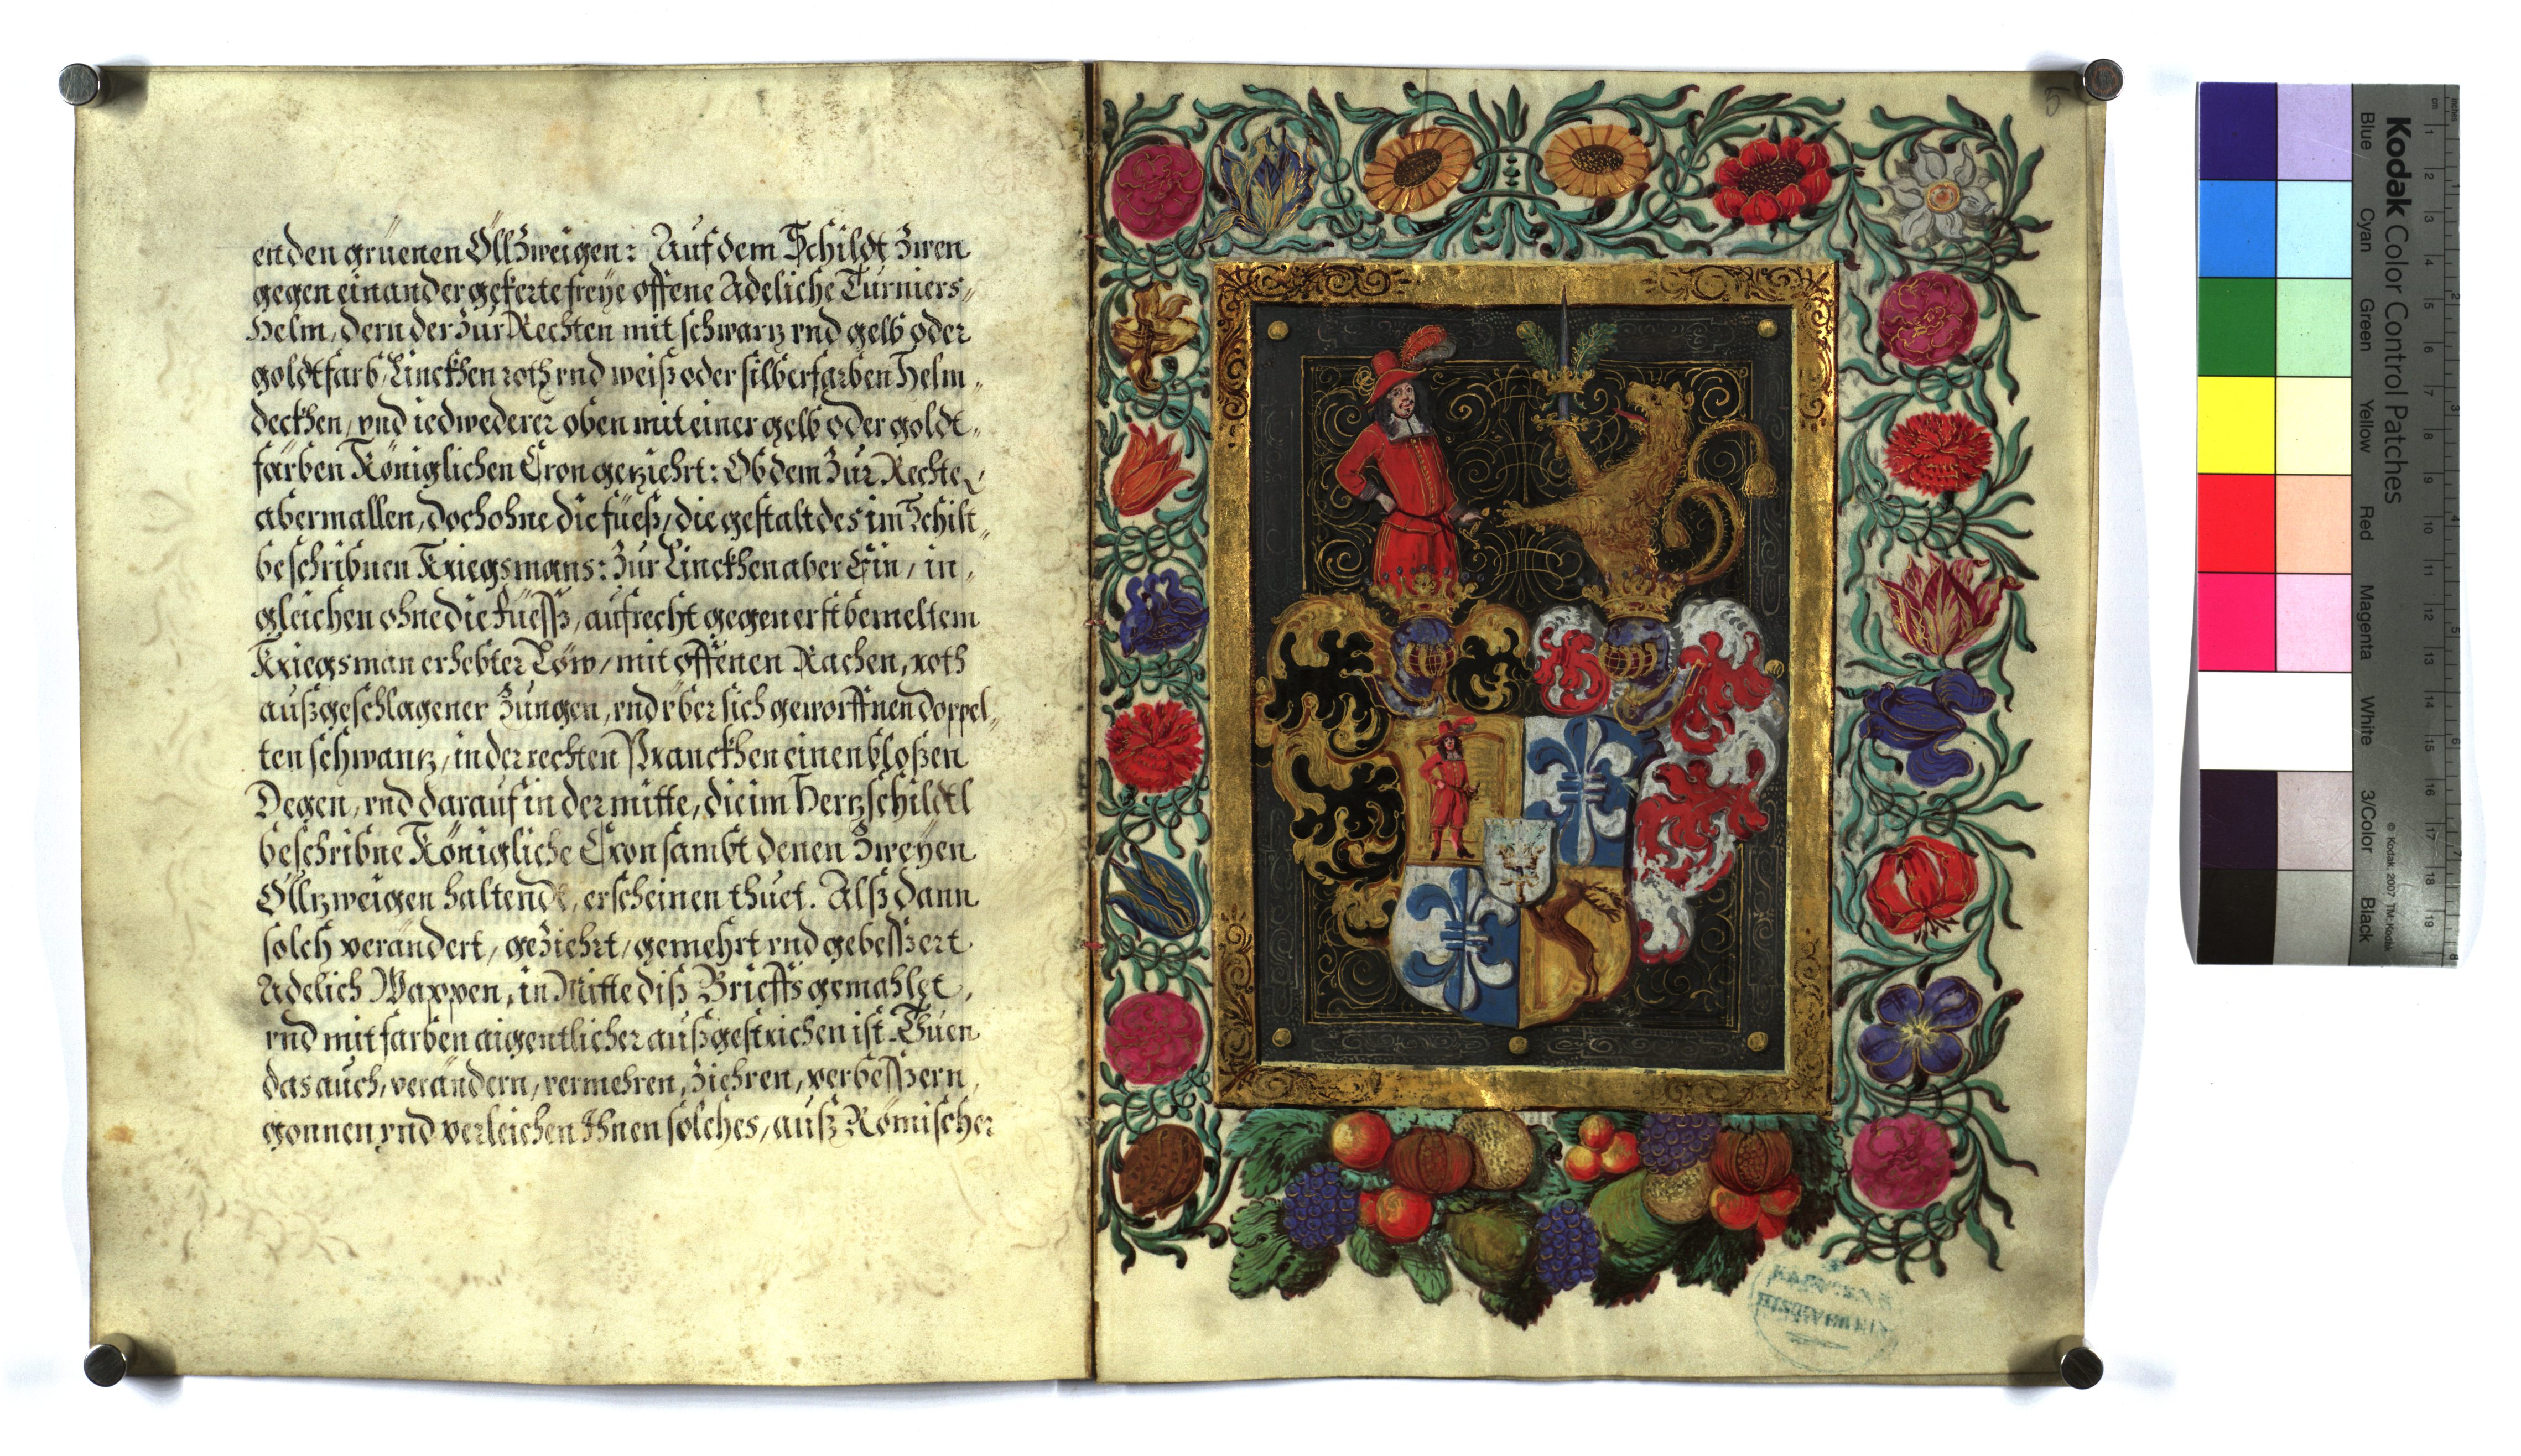 enden grüenen Öllzweigen: Auf dem Schildt zwen
gegen einander gekerte freye offene Adeliche Turniers-
Helm, dern der zur Rechten mit schwartz vnd gelb oder
goldtfarb, Linckhen roth vnd weiß oder silberfarben Helm-
deckhen, vnd iedwederer oben mit einer gelb oder goldt-
farben Königlichen Cron geziehrt: Ob dem zur Rechte
abermallen, doch ohne die füeß, die gestalt des im Schilt-
beschribnen Kriegsmans: zur Linckhen aber Ein, in-
gleichen ohne die Füess, aufrecht gegen erstbemeltem
Kriegsman erhebter Löw, mit offenen Rachen, roth
außgeschlagener Zungen, vnd vber sich geworffnen doppel-
ten schwantz, in der rechten Pranckhen einen bloßen
Degen, vnd darauf in der mitte, die im Hertzschildtl
beschribne Königliche Cron sambt denen zweyen
Öllzweigen haltendt, erscheinen thuet. Alß dann
solch verändert, geziehrt, gemehrt vnd gebessert
Adelich Wappen, in Mitte diß Brieffs gemahlet,
vnd mit farben aigentlicher außgestrichen ist. Thuen
das auch, verändern, vermehren, ziehren, verbessern,
gonnen vnd verleichen Ihnen solches, auß Römischer
5
Kodak Color Control Patches
Blue Cyan Green Yellow Red Magenta White 3/Color Black
© Kodak 2007 TM: Kodak
cm 1 2 3 4 5 6 7 8 9 10 11 12 13 14 15 16 17 18 19
inches 1 2 3 4 5 6 7 8